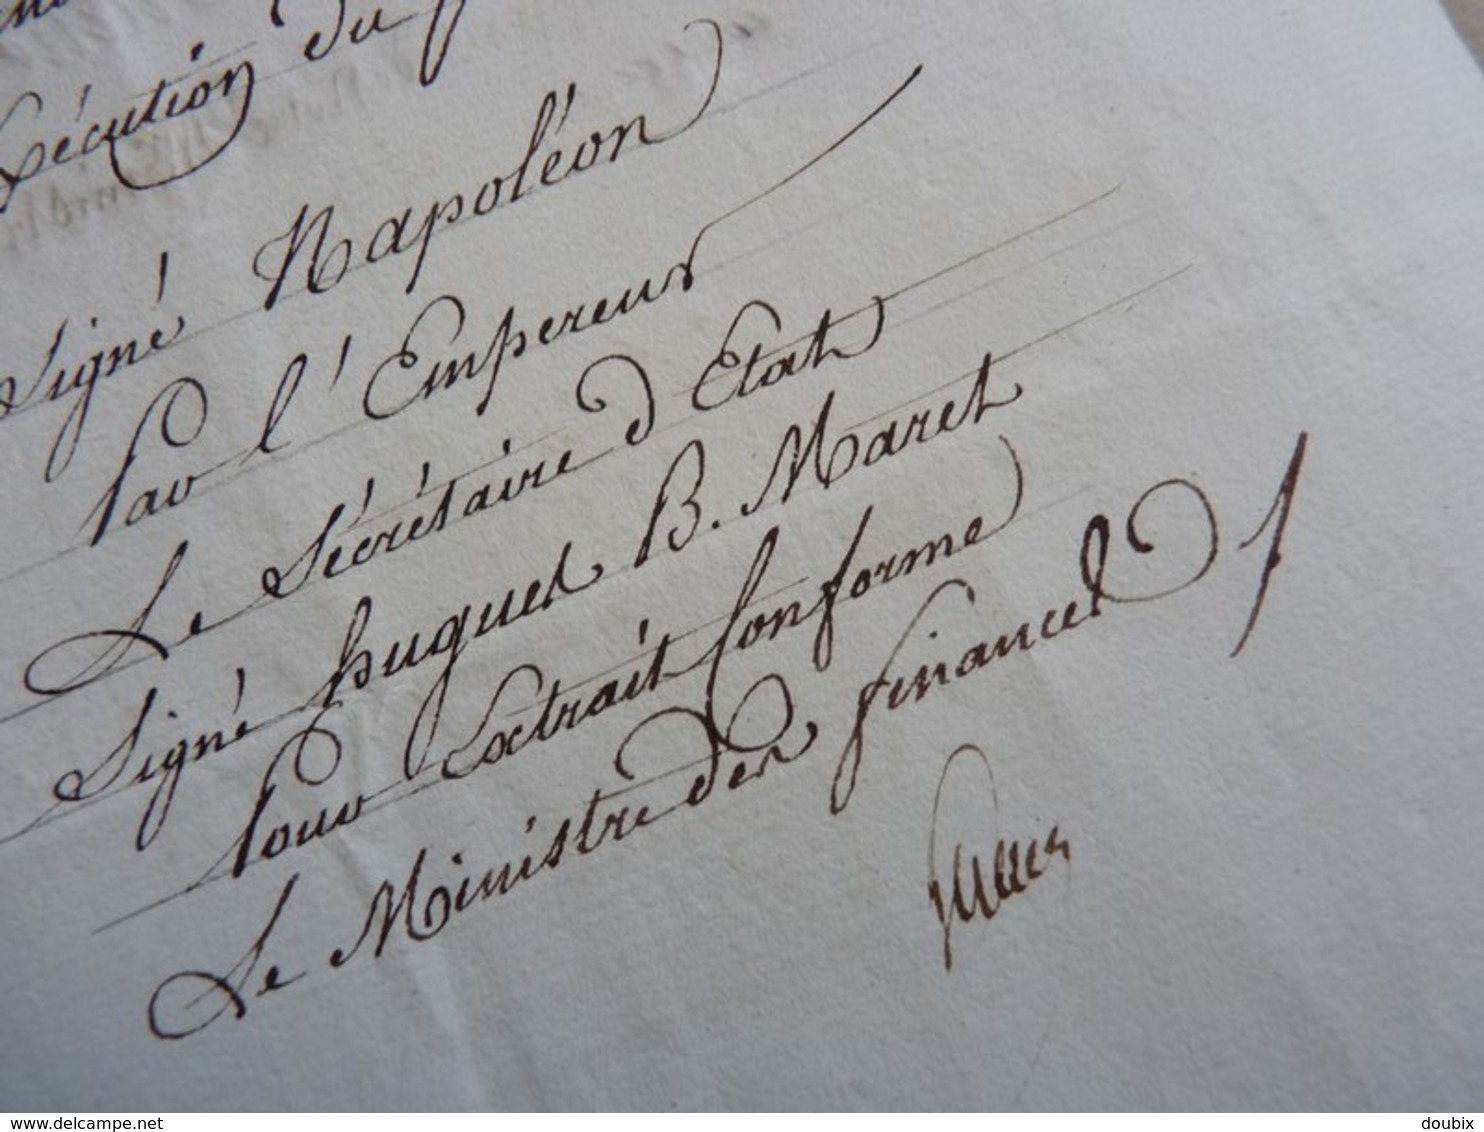 Exécution du
Signé Napoléon
Par l'Empereur
Le Sécrétaire d'Etat
Signé hugues B. Maret
Pour Extrait Conforme
Le Ministre des finances
delcampe.net
doubix